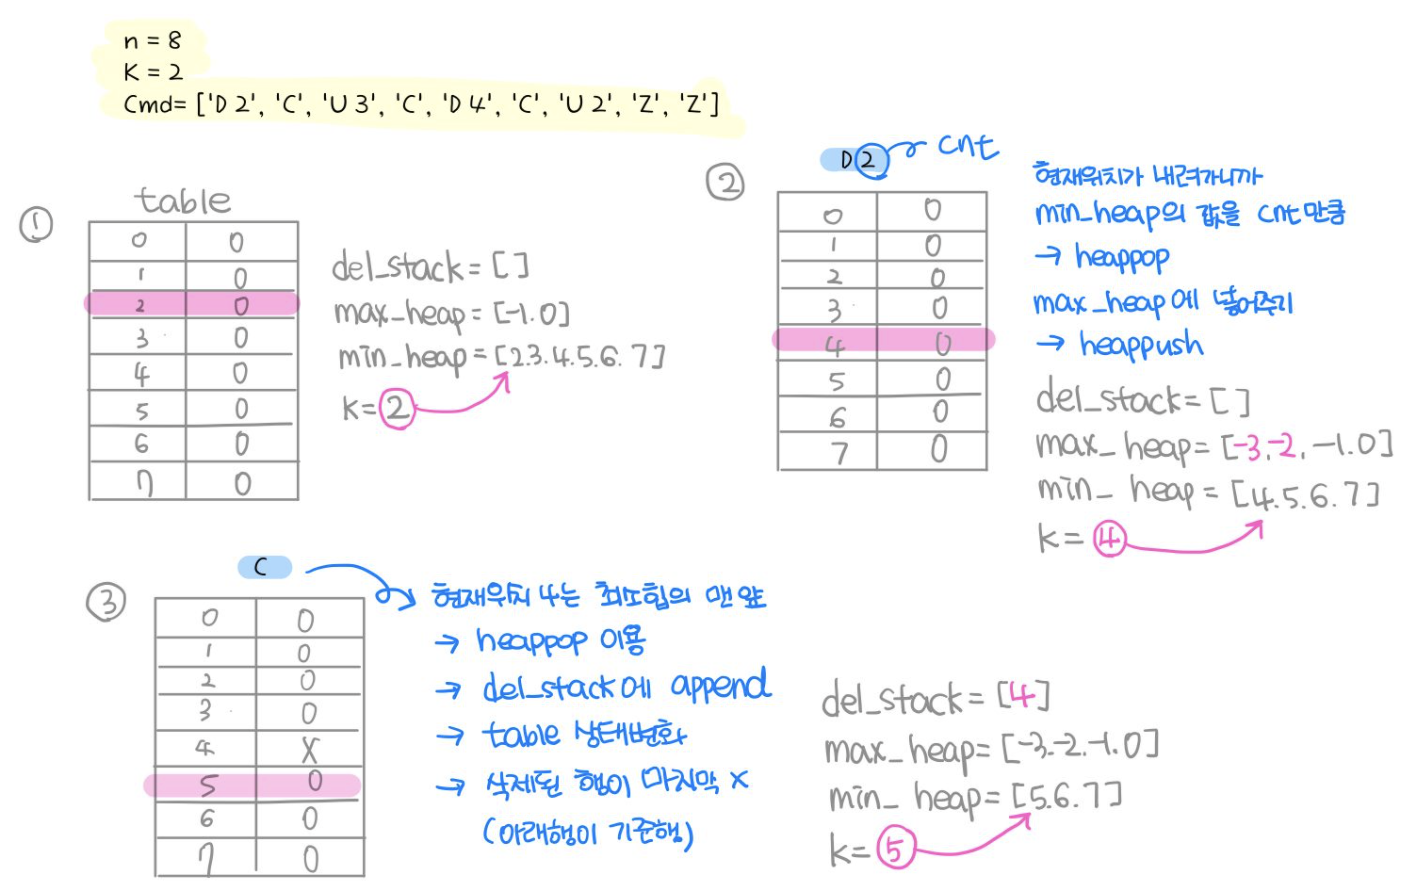 n = 8
K = 2
Cmd= ['D 2', 'C', 'U 3', 'C', 'D 4', 'C', 'U 2', 'Z', 'Z']
①
table
0 0
1 0
2 0
3 0
4 0
5 0
6 0
7 0
del_stack = [ ]
max_heap = [-1.0]
min_heap = [2.3.4.5.6.7]
k= 2
②
D 2 cnt
0 0
1 0
2 0
3 0
4 0
5 0
6 0
7 0
현재위치가 내려가니까
min_heap의 값을 cnt만큼
→ heappop
max_heap에 넣어주기
→ heappush
del_stack = [ ]
max_heap= [-3.-2.-1.0]
min_heap = [4.5.6.7]
k= 4
③
C
0 0
1 0
2 0
3 0
4 X
5 0
6 0
7 0
현재위치 4는 최소힙의 맨 앞
→ heappop 이용
→ del_stack에 append
→ table 상태변화
→ 삭제된 행이 마지막 x
(아래행이 기준행)
del_stack = [4]
max_heap= [-3.-2.-1.0]
min_heap= [5.6.7]
k= 5